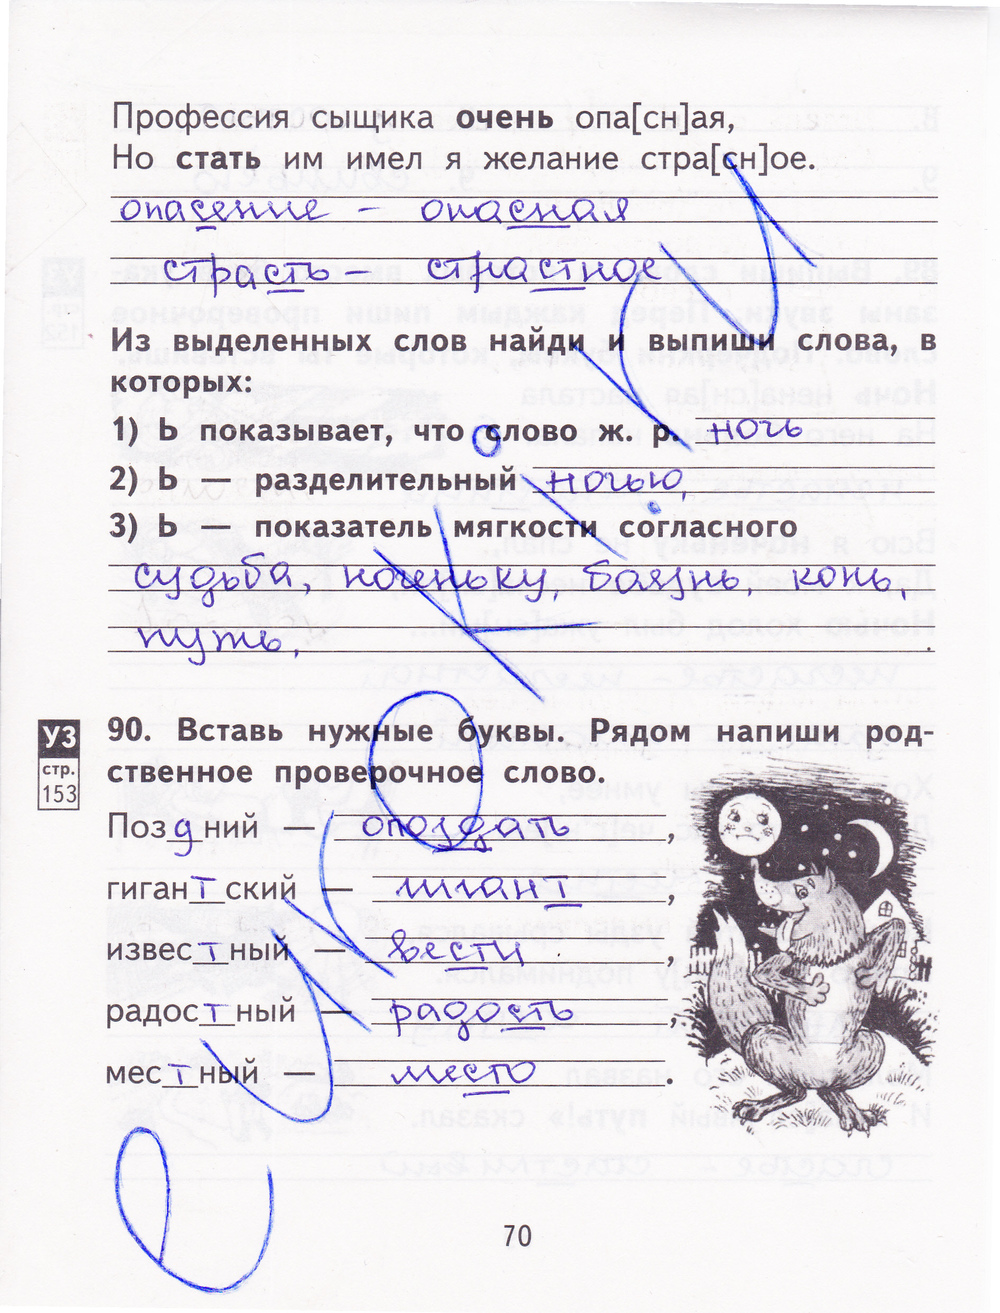 Профессия сыщика очень опа[сн]ая,
Но стать им имел я желание стра[сн]ое.
опасение – опасная
страсть – страстное
Из выделенных слов найди и выпиши слова, в
которых:
1) Ь показывает, что слово ж. р. ночь
2) Ь – разделительный ночью,
3) Ь — показатель мягкости согласного
судьба, ноченьку, боязнь, конь,
путь,
УЗ
стр.
153
90. Вставь нужные буквы. Рядом напиши род-
ственное проверочное слово.
Поздний — опоздать,
гигантский — гигант,
известный — вести,
радостный — радость,
местный — место.
70